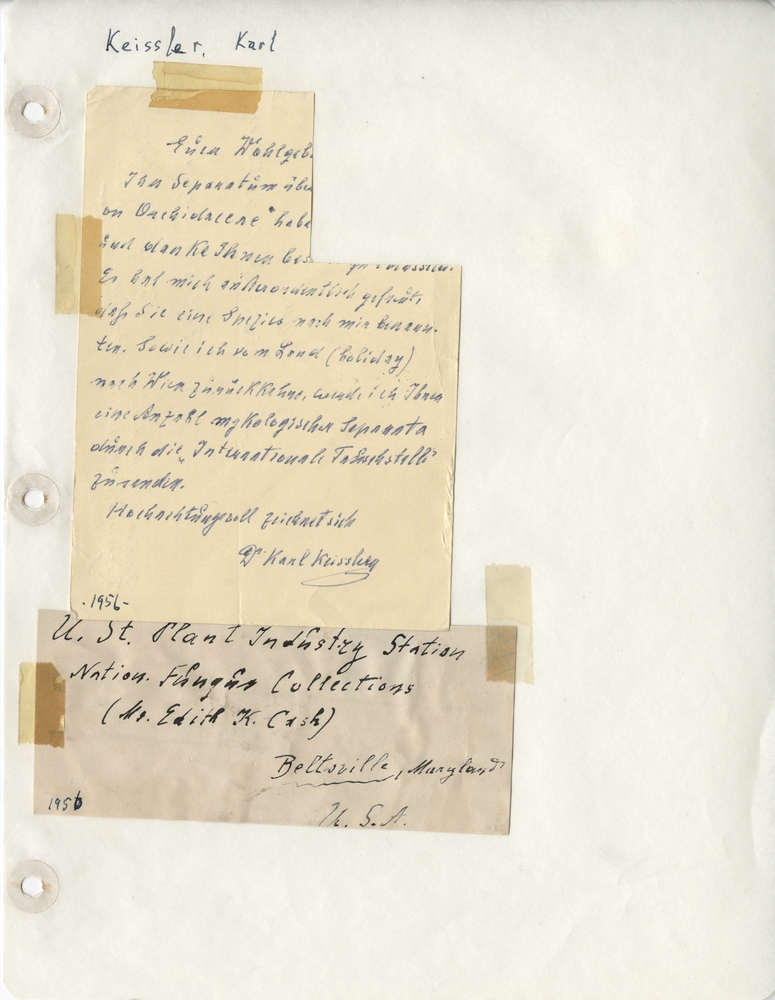 Keissler, Karl
Euer Wohlgeb.
Ihr Separatum über
on Orchidaceae" habe
und danke Ihnen bes
Es hat mich außerordentlich gefreut,
daß Sie eine Spezies nach mir benann-
ten. Sowie ich vom Land (holiday)
nach Wien zurückkehre, werde ich Ihnen
eine Anzahl mykologischer Separata
durch die "Internationale Tauschstelle"
zusenden.
Hochachtungsvoll zeichnet sich
Dr Karl Keissler
-1956-
U. St. Plant Industry Station
Nation. Fungus Collections
(Mr. Edith K. Cash)
Beltsville, Maryland
1956
U. S. A.